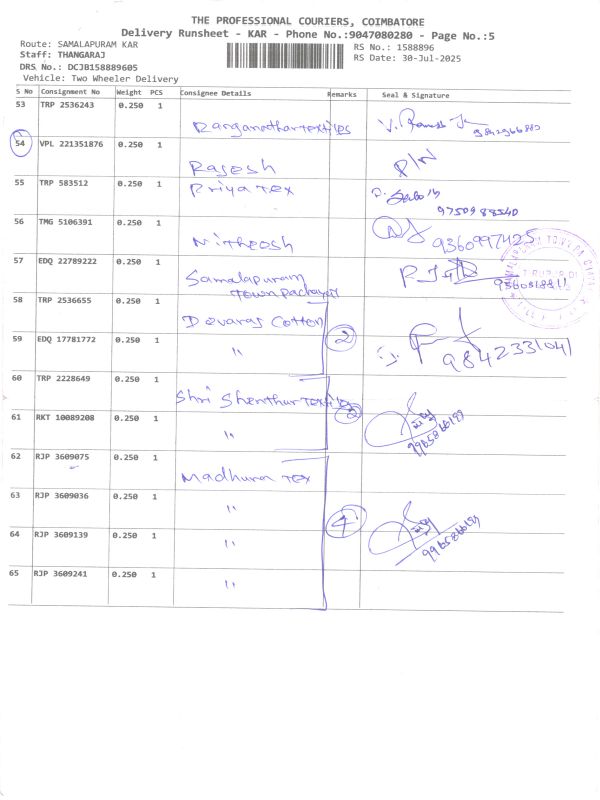 THE PROFESSIONAL COURIERS, COIMBATORE
Delivery Runsheet - KAR - Phone No.:9047080280 - Page No.:5
Route: SAMALAPURAM KAR
Staff: THANGARAJ
DRS No.: DCJB158889605
Vehicle: Two Wheeler Delivery
RS No.: 1588896
RS Date: 30-Jul-2025
S No Consignment No Weight PCS Consignee Details Remarks Seal & Signature
53 TRP 2536243 0.250 1 Ranganathar textiles
54 VPL 221351876 0.250 1 Rajesh P/W
55 TRP 583512 0.250 1 Priya Tex
9750988540
56 TMG 5106391 0.250 1 Nitheesh 9360997425
57 EDQ 22789222 0.250 1 Samalapuram
Town Pachayat 9360818811
58 TRP 2536655 0.250 1 Devaraj Cotton
59 EDQ 17781772 0.250 1 " 2 9842331041
60 TRP 2228649 0.250 1 Shri Shenthur Textiles
61 RKT 10089208 0.250 1 " 2
62 RJP 3609075 0.250 1 Madhura Tex
63 RJP 3609036 0.250 1 " 4
64 RJP 3609139 0.250 1 "
65 RJP 3609241 0.250 1 "